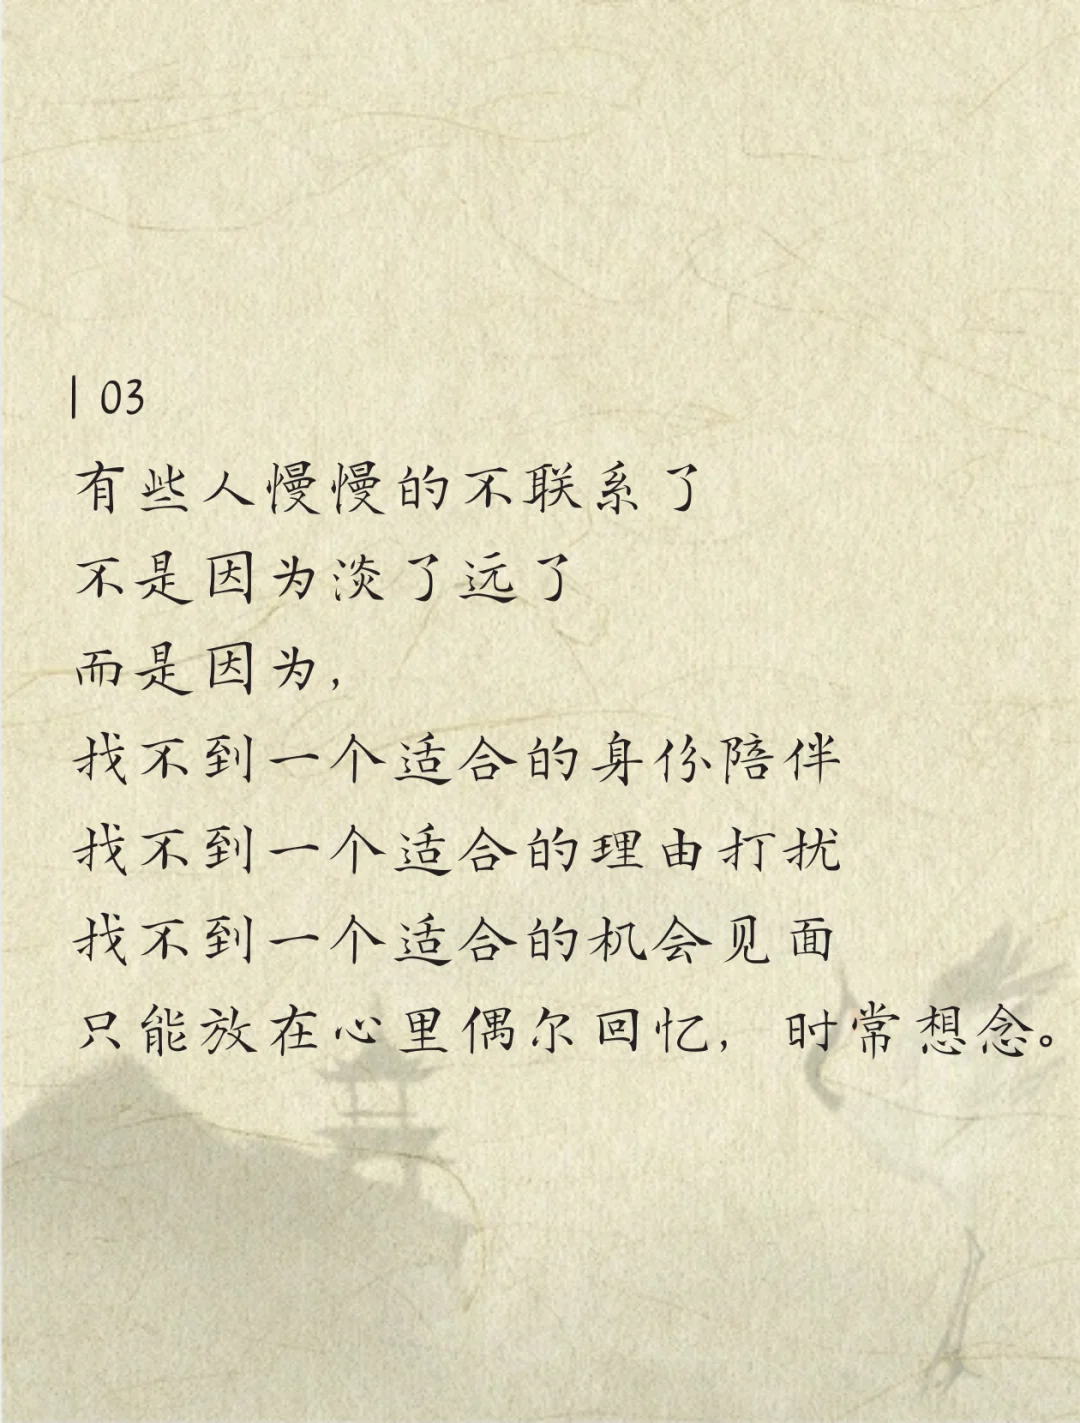 | 03
有些人慢慢的不联系了
不是因为淡了远了
而是因为，
找不到一个适合的身份陪伴
找不到一个适合的理由打扰
找不到一个适合的机会见面
只能放在心里偶尔回忆，时常想念。